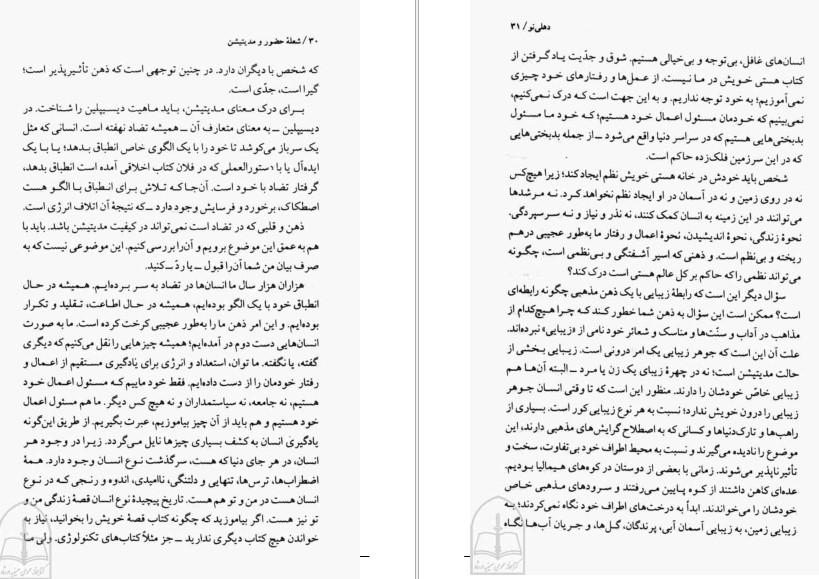 ۳۰/ شعلهٔ حضور و مدیتیشن
که شخص با دیگران دارد. در چنین توجهی است که ذهن تأثیرپذیر است؛
گیرا است، جدّی است.
برای درک معنای مدیتیشن، باید ماهیت دیسیپلین را شناخت. در
دیسیپلین ــ به معنای متعارف آن ــ همیشه تضاد نهفته است. انسانی که مثل
یک سرباز می‌کوشد تا خود را با یک الگوی خاص انطباق بدهد؛ یا با یک
ایده‌آل یا با دستورالعملی که در فلان کتاب اخلاقی آمده است انطباق بدهد،
گرفتار تضاد با خود است. آن‌جا که تلاش برای انطباق با الگو هست
اصطکاک، برخورد و فرسایش وجود دارد ــ که نتیجهٔ آن اتلاف انرژی است.
ذهن و قلبی که در تضاد است نمی‌تواند در کیفیت مدیتیشن باشد. باید با
هم به عمق این موضوع برویم و آن را بررسی کنیم. این موضوعی نیست که به
صرف بیان من شما آن را قبول ــ یا ردّ ــ کنید.
هزاران هزار سال ما انسان‌ها در تضاد به سر برده‌ایم. همیشه در حال
انطباق خود با یک الگو بوده‌ایم، همیشه در حال اطاعت، تقلید و تکرار
بوده‌ایم. و این امر ذهن ما را به‌طور عجیبی کرخت کرده است. ما به صورت
انسان‌هایی دست دوم در آمده‌ایم؛ همیشه چیزهایی را نقل می‌کنیم که دیگری
گفته، یا نگفته. ما توان، استعداد و انرژی برای یادگیری مستقیم از اعمال و
رفتار خودمان را از دست داده‌ایم. فقط خود ماییم که مسئول اعمال خود
هستیم، نه جامعه، نه سیاستمداران و نه هیچ کس دیگر. ما هم مسئول اعمال
خود هستیم و هم باید از آن چیز بیاموزیم، عبرت بگیریم. از طریق این‌گونه
یادگیری انسان به کشف بسیاری چیزها نایل می‌گردد. زیرا در وجود هر
انسان، در هر جای دنیا که هست، سرگذشت نوع انسان وجود دارد. همهٔ
اضطراب‌ها، ترس‌ها، تنهایی و دلتنگی، ناامیدی، اندوه و رنجی که در نوع
انسان هست در من و تو هم هست. تاریخ پیچیدهٔ نوع انسان قصهٔ زندگی من و
تو نیز هست. اگر بیاموزید که چگونه کتاب قصهٔ خویش را بخوانید، نیاز به
خواندن هیچ کتاب دیگری ندارید ــ جز مثلاً کتاب‌های تکنولوژی. ولی ما
دهلی‌نو / ۳۱
انسان‌های غافل، بی‌توجه و بی‌خیالی هستیم. شوق و جدّیت یاد گرفتن از
کتاب هستی خویش در ما نیست. از عمل‌ها و رفتارهای خود چیزی
نمی‌آموزیم؛ به خود توجه نداریم. و به این جهت است که درک نمی‌کنیم،
نمی‌بینیم که خودمان مسئول اعمال خود هستیم؛ که خود ما مسئول
بدبختی‌هایی هستیم که در سراسر دنیا واقع می‌شود ــ از جمله بدبختی‌هایی
که در این سرزمین فلک‌زده حاکم است.
شخص باید خودش در خانه هستی خویش نظم ایجاد کند؛ زیرا هیچ‌کس
نه در روی زمین و نه در آسمان در او ایجاد نظم نخواهد کرد. نه مرشدها
می‌توانند در این زمینه به انسان کمک کنند، نه نذر و نیاز و نه سرسپردگی.
نحوهٔ زندگی، نحوهٔ اندیشیدن، نحوهٔ اعمال و رفتار ما به‌طور عجیبی درهم
ریخته و بی‌نظم است. و ذهنی که اسیر آشفتگی و بی‌نظمی است، چگونه
می‌تواند نظمی را که حاکم بر کل عالم هستی است درک کند؟
سؤال دیگر این است که رابطهٔ زیبایی با یک ذهن مذهبی چگونه رابطه‌ای
است؟ ممکن است این سؤال به ذهن شما خطور کند که چرا هیچ‌کدام از
مذاهب در آداب و سنّت‌ها و مناسک و شعائر خود نامی از «زیبایی» نبرده‌اند.
علت آن این است که جوهر زیبایی یک امر درونی است. زیبایی بخشی از
حالت مدیتیشن است؛ نه در چهرهٔ زیبای یک زن یا مرد ــ البته آن‌ها هم
زیبایی خاصّ خودشان را دارند. منظور این است که تا وقتی انسان جوهر
زیبایی را درون خویش ندارد؛ نسبت به هر نوع زیبایی کور است. بسیاری از
راهب‌ها و تارک‌دنیاها و کسانی که به اصطلاح گرایش‌های مذهبی دارند، این
موضوع را نادیده می‌گیرند و نسبت به محیط اطراف خود بی‌تفاوت، سخت و
تأثیرناپذیر می‌شوند. زمانی با بعضی از دوستان در کوه‌های هیمالیا بودیم.
عده‌ای کاهن داشتند از کوه پایین می‌رفتند و سرودهای مذهبی خاص
خودشان را می‌خواندند. ابداً به درخت‌های اطراف خود نگاه نمی‌کردند؛ به
زیبایی زمین، به زیبایی آسمان آبی، پرندگان، گل‌ها، و جریان آب‌ها نگاه